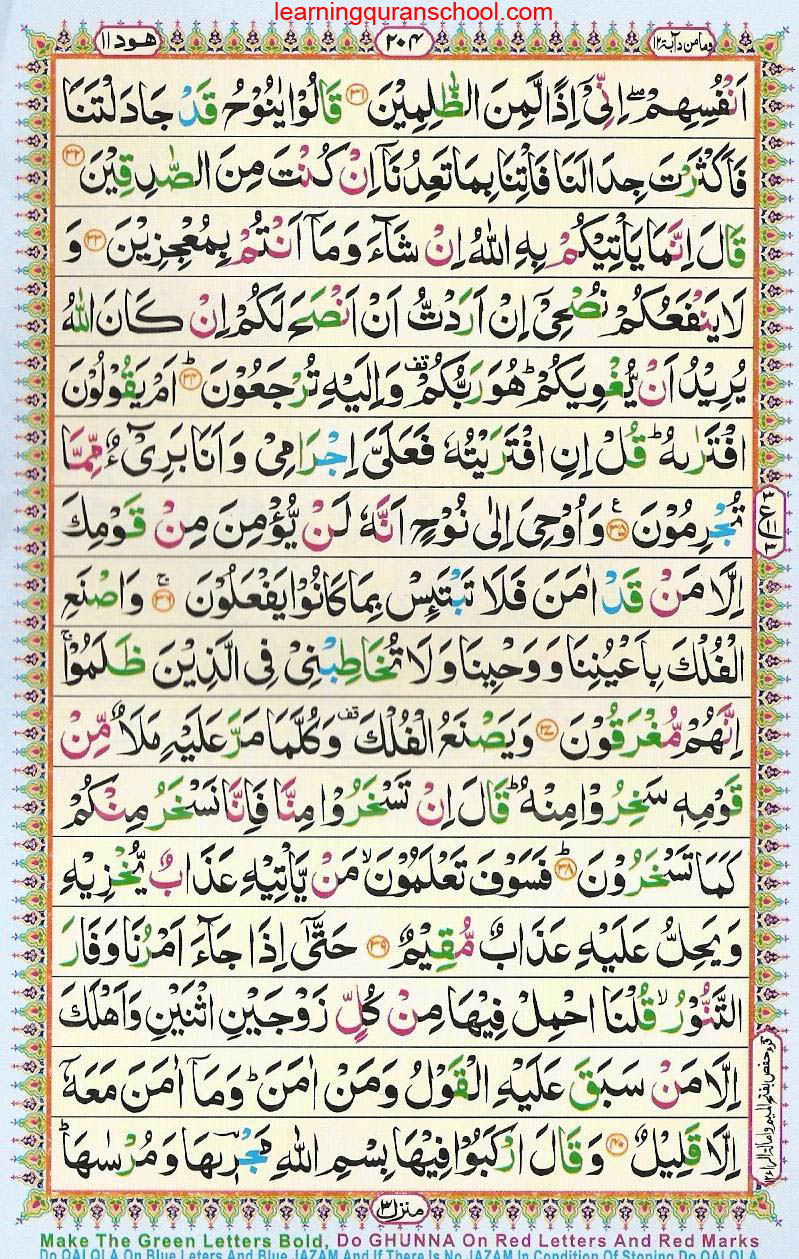 learningquranschool.com
وما من دآبۃ ۱۲
۲۰۴
هود ۱۱
اَنْفُسِهِمْ ۖۚ اِنِّیْۤ اِذًا لَّمِنَ الظّٰلِمِیْنَ ﴿۳۱﴾ قَالُوْا یٰنُوْحُ قَدْ جَادَلْتَنَا
فَاَكْثَرْتَ جِدَالَنَا فَاْتِنَا بِمَا تَعِدُنَاۤ اِنْ كُنْتَ مِنَ الصّٰدِقِیْنَ ﴿۳۲﴾
قَالَ اِنَّمَا یَاْتِیْكُمْ بِهِ اللّٰهُ اِنْ شَآءَ وَمَاۤ اَنْتُمْ بِمُعْجِزِیْنَ ﴿۳۳﴾ وَ
لَا یَنْفَعُكُمْ نُصْحِیْۤ اِنْ اَرَدْتُّ اَنْ اَنْصَحَ لَكُمْ اِنْ كَانَ اللّٰهُ
یُرِیْدُ اَنْ یُّغْوِیَكُمْ ؕ هُوَ رَبُّكُمْ ۫ وَاِلَیْهِ تُرْجَعُوْنَ ﴿۳۴﴾ؕ اَمْ یَقُوْلُوْنَ
افْتَرٰىهُ ؕ قُلْ اِنِ افْتَرَیْتُهٗ فَعَلَیَّ اِجْرَامِیْ وَاَنَا بَرِیْٓءٌ مِّمَّا
تُجْرِمُوْنَ ﴿۳۵﴾ع وَاُوْحِیَ اِلٰی نُوْحٍ اَنَّهٗ لَنْ یُّؤْمِنَ مِنْ قَوْمِكَ
اِلَّا مَنْ قَدْ اٰمَنَ فَلَا تَبْتَىِٕسْ بِمَا كَانُوْا یَفْعَلُوْنَ ﴿۳۶﴾ۚ وَاصْنَعِ
الْفُلْكَ بِاَعْیُنِنَا وَوَحْیِنَا وَلَا تُخَاطِبْنِیْ فِی الَّذِیْنَ ظَلَمُوْا ۚ
اِنَّهُمْ مُّغْرَقُوْنَ ﴿۳۷﴾ وَیَصْنَعُ الْفُلْكَ ۫ وَكُلَّمَا مَرَّ عَلَیْهِ مَلَاٌ مِّنْ
قَوْمِهٖ سَخِرُوْا مِنْهُ ؕ قَالَ اِنْ تَسْخَرُوْا مِنَّا فَاِنَّا نَسْخَرُ مِنْكُمْ
كَمَا تَسْخَرُوْنَ ﴿۳۸﴾ؕ فَسَوْفَ تَعْلَمُوْنَ ۙ مَنْ یَّاْتِیْهِ عَذَابٌ یُّخْزِیْهِ
وَیَحِلُّ عَلَیْهِ عَذَابٌ مُّقِیْمٌ ﴿۳۹﴾ حَتّٰۤی اِذَا جَآءَ اَمْرُنَا وَفَارَ
التَّنُّوْرُ ۙ قُلْنَا احْمِلْ فِیْهَا مِنْ كُلٍّ زَوْجَیْنِ اثْنَیْنِ وَاَهْلَكَ
اِلَّا مَنْ سَبَقَ عَلَیْهِ الْقَوْلُ وَمَنْ اٰمَنَ ؕ وَمَاۤ اٰمَنَ مَعَهٗۤ
اِلَّا قَلِیْلٌ ﴿۴۰﴾ وَقَالَ ارْكَبُوْا فِیْهَا بِسْمِ اللّٰهِ مَجْرٖىهَا وَمُرْسٰىهَا ؕ
منزل ۳
Make The Green Letters Bold, Do GHUNNA On Red Letters And Red Marks
Do QALQLA On Blue Leters And Blue JAZAM And If There Is No JAZAM In Condition Of Stoping Do QALQLA